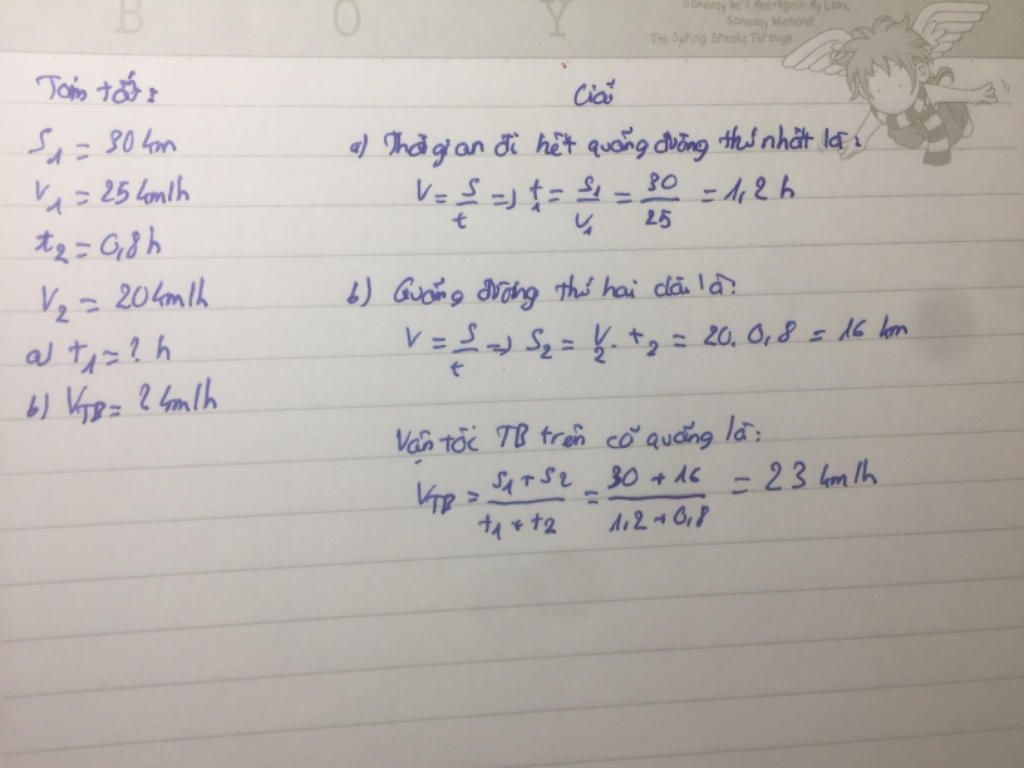 B O Y
Someday We'll Meet Again My Love,
Someday, Whenever!
The Spring Breaks Through
Tóm tắt:
S₁ = 30 km
V₁ = 25 km/h
t₂ = 0,8 h
V₂ = 20 km/h
a) t₁ = ? h
b) V_TB = ? km/h
Giải
a) Thời gian đi hết quãng đường thứ nhất là:
V = S/t => t₁ = S₁/V₁ = 30/25 = 1,2 h
b) Quãng đường thứ hai dài là:
V = S/t => S₂ = V₂ . t₂ = 20. 0,8 = 16 km
Vận tốc TB trên cả quãng là:
V_TB = (S₁ + S₂)/(t₁ + t₂) = (30 + 16)/(1,2 + 0,8) = 23 km/h